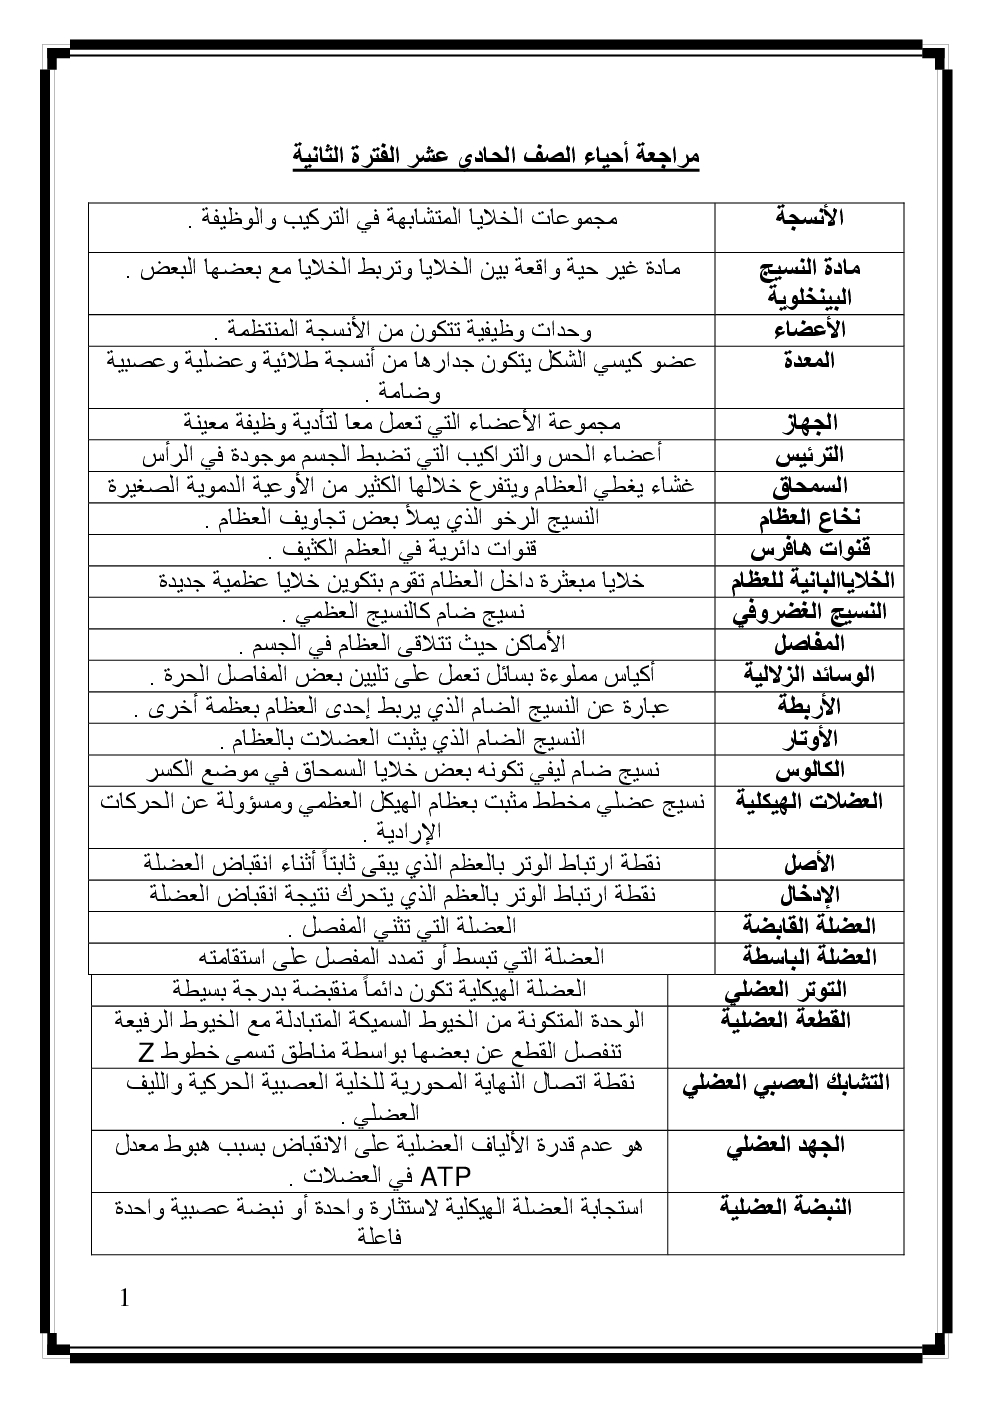 مراجعة أحياء الصف الحادي عشر الفترة الثانية
الأنسجة
مجموعات الخلايا المتشابهة في التركيب والوظيفة .
مادة النسيج
البينخلوية
مادة غير حية واقعة بين الخلايا وتربط الخلايا مع بعضها البعض .
الأعضاء
وحدات وظيفية تتكون من الأنسجة المنتظمة .
المعدة
عضو كيسي الشكل يتكون جدارها من أنسجة طلائية وعضلية وعصبية
وضامة .
الجهاز
مجموعة الأعضاء التي تعمل معا لتأدية وظيفة معينة
الترئيس
أعضاء الحس والتراكيب التي تضبط الجسم موجودة في الرأس
السمحاق
غشاء يغطي العظام ويتفرع خلالها الكثير من الأوعية الدموية الصغيرة
نخاع العظام
النسيج الرخو الذي يملأ بعض تجاويف العظام .
قنوات هافرس
قنوات دائرية في العظم الكثيف .
الخلاياالبانية للعظام
خلايا مبعثرة داخل العظام تقوم بتكوين خلايا عظمية جديدة
النسيج الغضروفي
نسيج ضام كالنسيج العظمي .
المفاصل
الأماكن حيث تتلاقى العظام في الجسم .
الوسائد الزلالية
أكياس مملوءة بسائل تعمل على تليين بعض المفاصل الحرة .
الأربطة
عبارة عن النسيج الضام الذي يربط إحدى العظام بعظمة أخرى .
الأوتار
النسيج الضام الذي يثبت العضلات بالعظام .
الكالوس
نسيج ضام ليفي تكونه بعض خلايا السمحاق في موضع الكسر
العضلات الهيكلية
نسيج عضلي مخطط مثبت بعظام الهيكل العظمي ومسؤولة عن الحركات
الإرادية .
الأصل
نقطة ارتباط الوتر بالعظم الذي يبقى ثابتاً أثناء انقباض العضلة
الإدخال
نقطة ارتباط الوتر بالعظم الذي يتحرك نتيجة انقباض العضلة
العضلة القابضة
العضلة التي تثني المفصل .
العضلة الباسطة
العضلة التي تبسط أو تمدد المفصل على استقامته
التوتر العضلي
العضلة الهيكلية تكون دائماً منقبضة بدرجة بسيطة
القطعة العضلية
الوحدة المتكونة من الخيوط السميكة المتبادلة مع الخيوط الرفيعة
تنفصل القطع عن بعضها بواسطة مناطق تسمى خطوط Z
التشابك العصبي العضلي
نقطة اتصال النهاية المحورية للخلية العصبية الحركية والليف
العضلي .
الجهد العضلي
هو عدم قدرة الألياف العضلية على الانقباض بسبب هبوط معدل
ATP في العضلات .
النبضة العضلية
استجابة العضلة الهيكلية لاستثارة واحدة أو نبضة عصبية واحدة
فاعلة
1